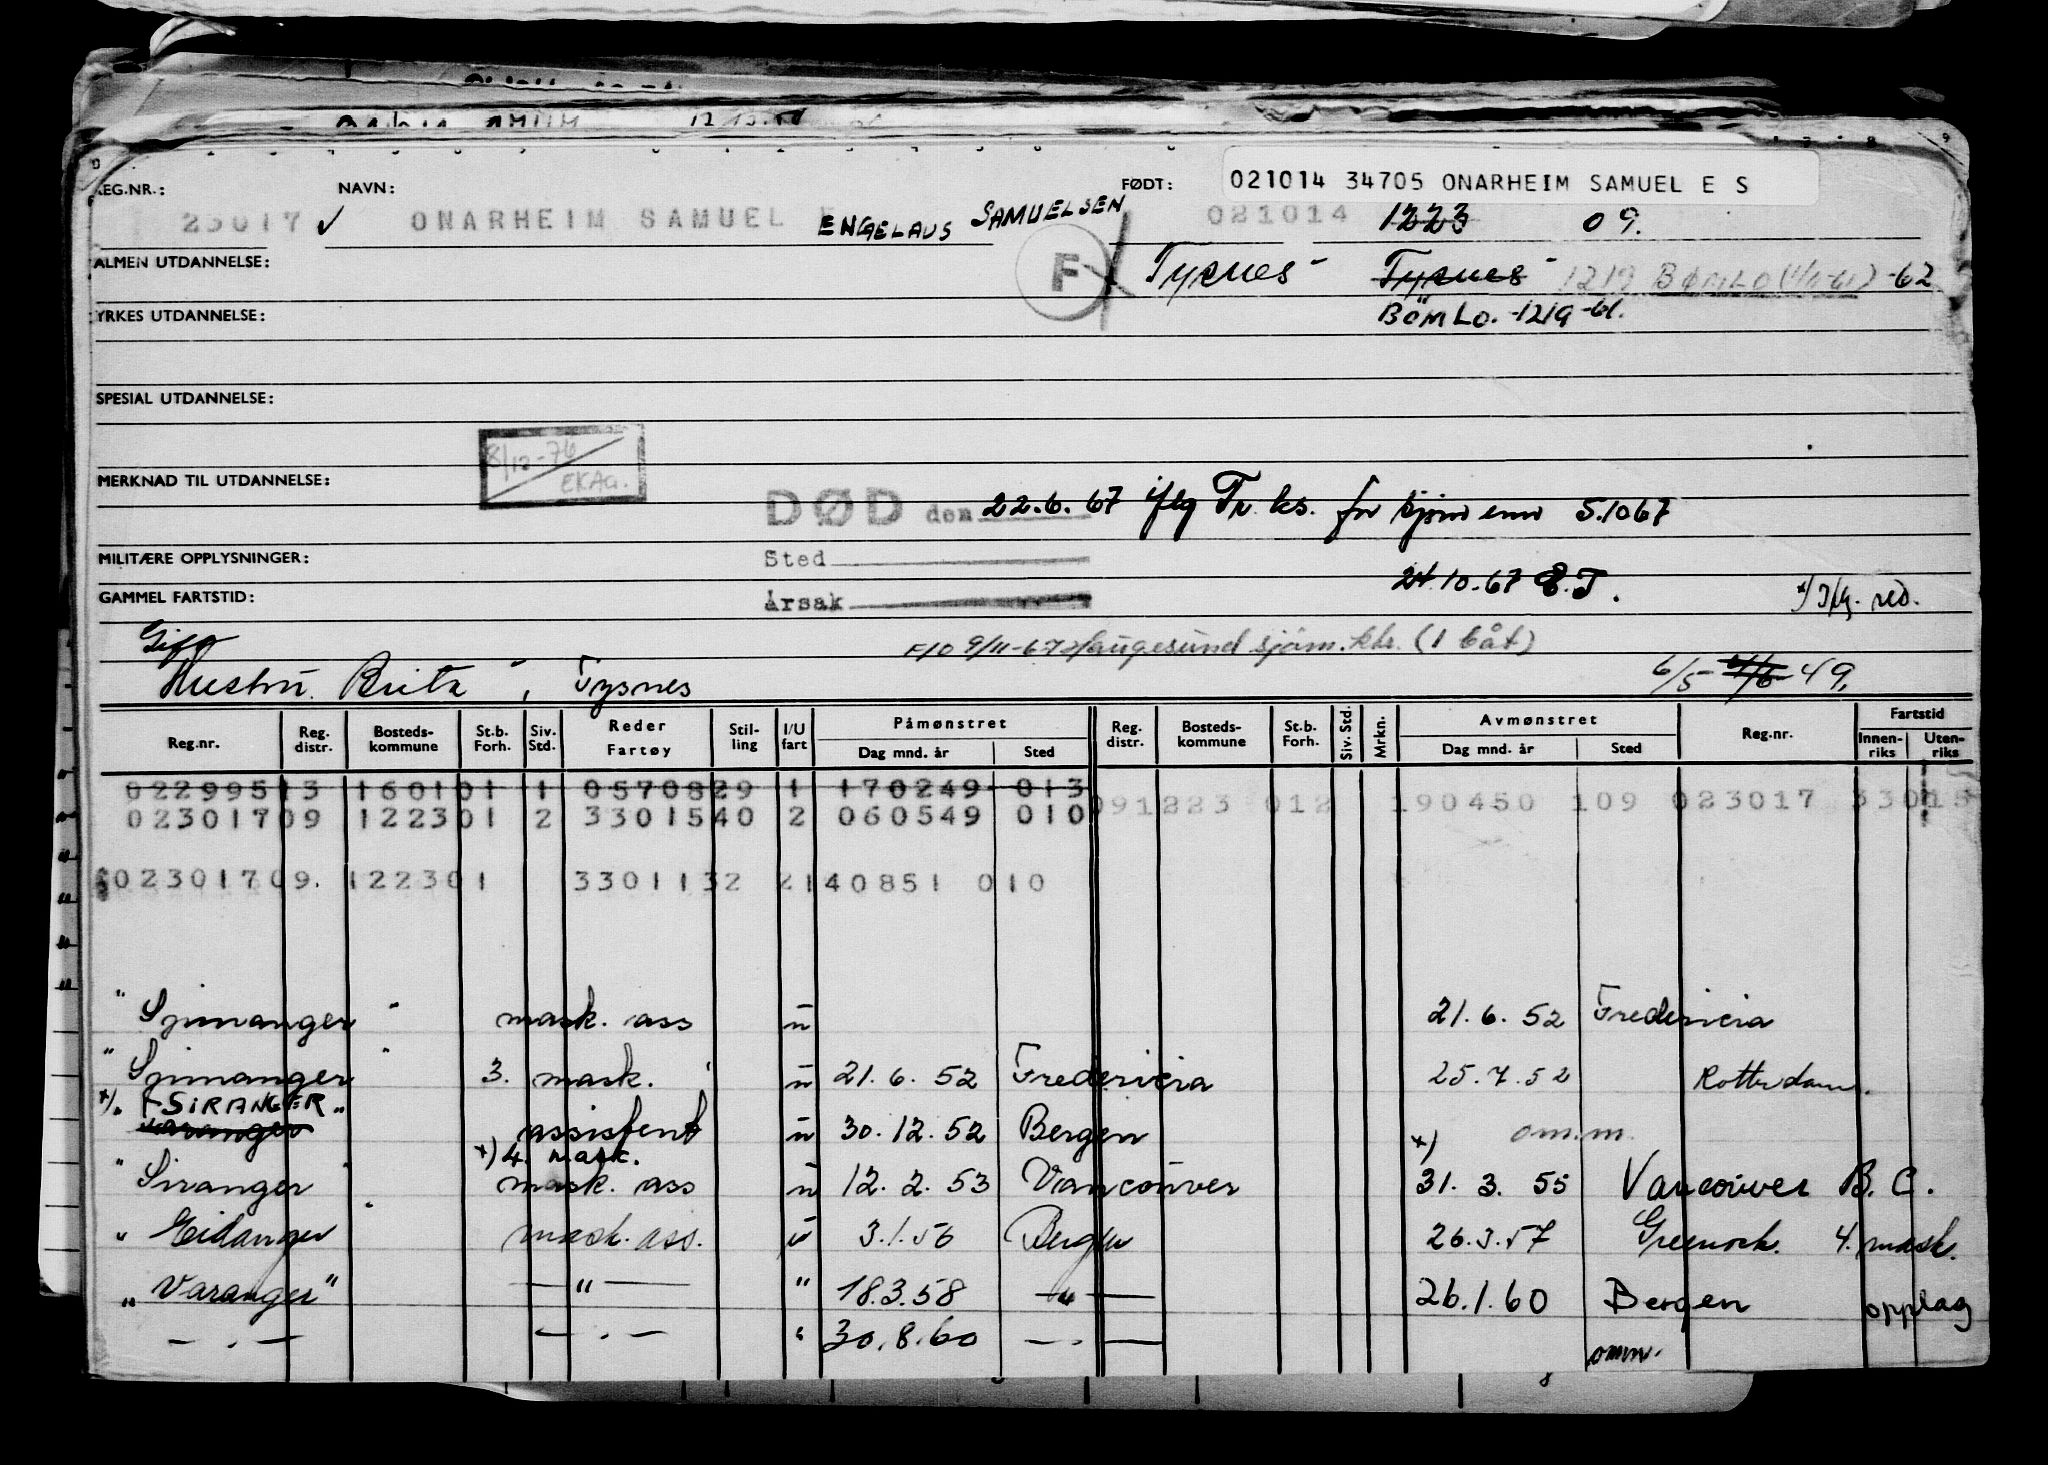 REG.NR.: NAVN: FØDT: 021014 34705 ONARHEIM SAMUEL E S
23017 ✓ ONARHEIM SAMUEL E ENGELAUS SAMUELSEN 021014 1223 09.
ALMEN UTDANNELSE: F Tysnes Tysnes 1219 BØMLO -62
YRKES UTDANNELSE: BØMLO. -1219-61.
SPESIAL UTDANNELSE:
8/12-76
EKAG.
MERKNAD TIL UTDANNELSE:
DØD den 22.6.67 iflg Tr. ks. for sjømenn 5.1067
MILITÆRE OPPLYSNINGER: Sted
24.10.67 E.T.
GAMMEL FARTSTID: Årsak x) Iflg. red.
Gift F10 9/11-67 Haugesund sjøm.ktr. (1 båt)
Hustru Brita, Tysnes 6/5 49.
Reg.nr. Reg. distr. Bosteds-kommune St.b. Forh. Siv. Std. Reder Fartøy Stil-ling I/U fart Påmønstret Dag mnd. år Sted Reg. distr. Bosteds-kommune St.b. Forh. Siv. Std. Mrkn. Avmønstret Dag mnd. år Sted Reg.nr. Fartstid Innen-riks Uten-riks
02299513 160101 1 0570829 1 170249 013
02301709 122301 2 3301540 2 060549 010 091223 012 190450 109 023017 33015
02301709. 122301 3301132 2140851 010
" Spinanger " mask. ass u 21.6.52 Fredericia
" Spinanger " 3. mask. u 21.6.52 Fredericia 25.7.52 Rotterdam.
x) "SIRANGER"
Varanger assistent u 30.12.52 Bergen x) om.m.
x) 4. mask.
" Siranger " mask. ass u 12.2.53 Vancouver 31.3.55 Vancouver B.C.
" Eidanger mask. ass. u 3.1.56 Bergen 26.3.57 Greenock. 4. mask.
"Varanger" — " — " 18.3.58 — " — 26.1.60 Bergen opplag
— . — — . — " 30.8.60 — . —
omm.